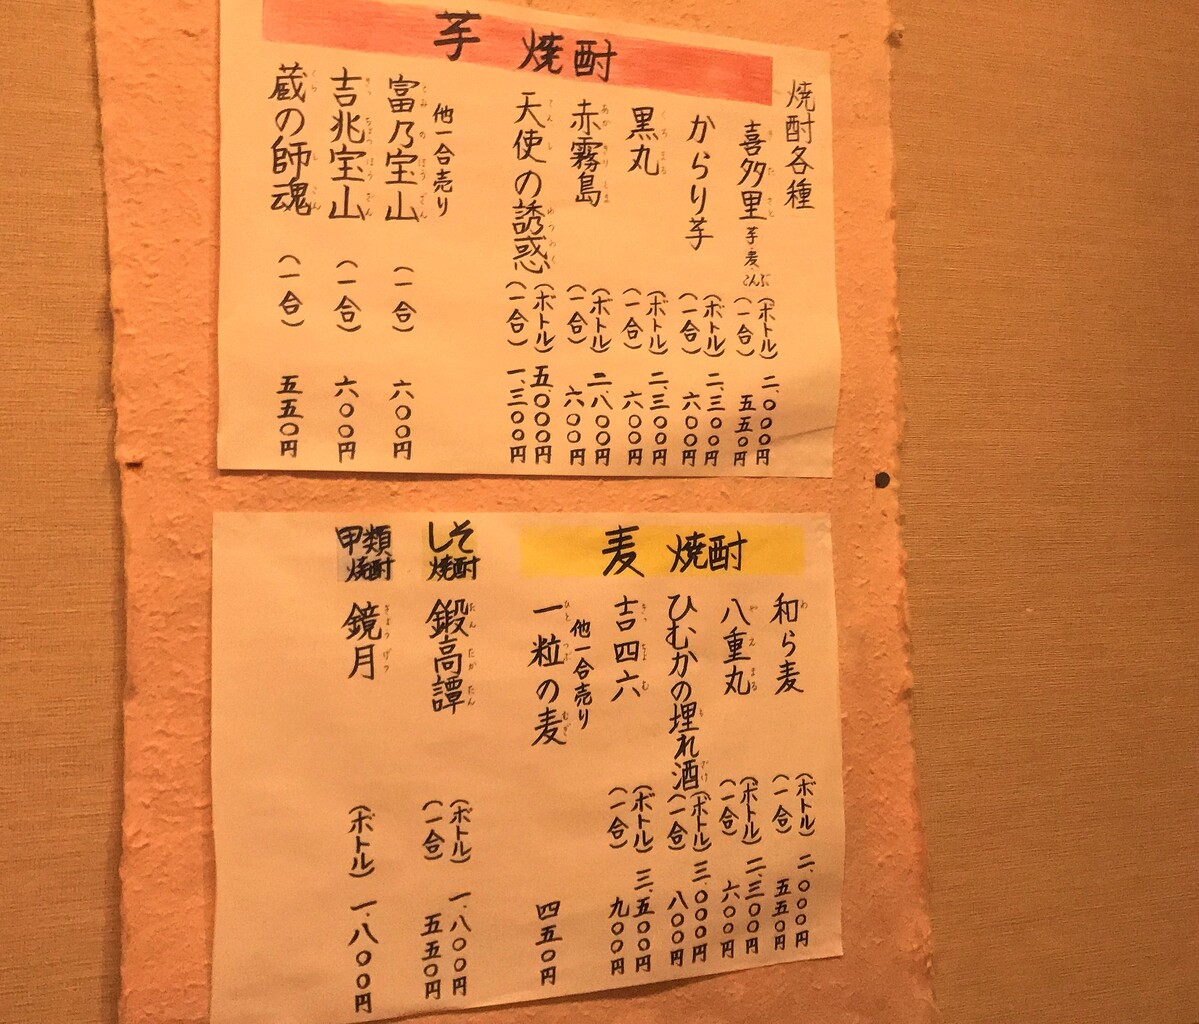 芋焼酎
焼酎各種
喜多里 芋・麦・こんぶ (ボトル) 二、〇〇〇円
(一合) 五五〇円
からり芋 (ボトル) 二、三〇〇円
(一合) 六〇〇円
黒丸 (ボトル) 二、三〇〇円
(一合) 六〇〇円
赤霧島 (ボトル) 二、八〇〇円
(一合) 六〇〇円
天使の誘惑 (ボトル) 五、〇〇〇円
(一合) 一、三〇〇円
他一合売り
富乃宝山 (一合) 六〇〇円
吉兆宝山 (一合) 六〇〇円
蔵の師魂 (一合) 五五〇円
麦焼酎
和ら麦 (ボトル) 二、〇〇〇円
(一合) 五五〇円
八重丸 (ボトル) 二、三〇〇円
(一合) 六〇〇円
ひむかの埋れ酒 (ボトル) 三、〇〇〇円
(一合) 八〇〇円
吉四六 (ボトル) 三、五〇〇円
(一合) 九〇〇円
他一合売り
一粒の麦 四五〇円
しそ焼酎
鍛高譚 (ボトル) 一、八〇〇円
(一合) 五五〇円
甲類焼酎
鏡月 (ボトル) 一、八〇〇円